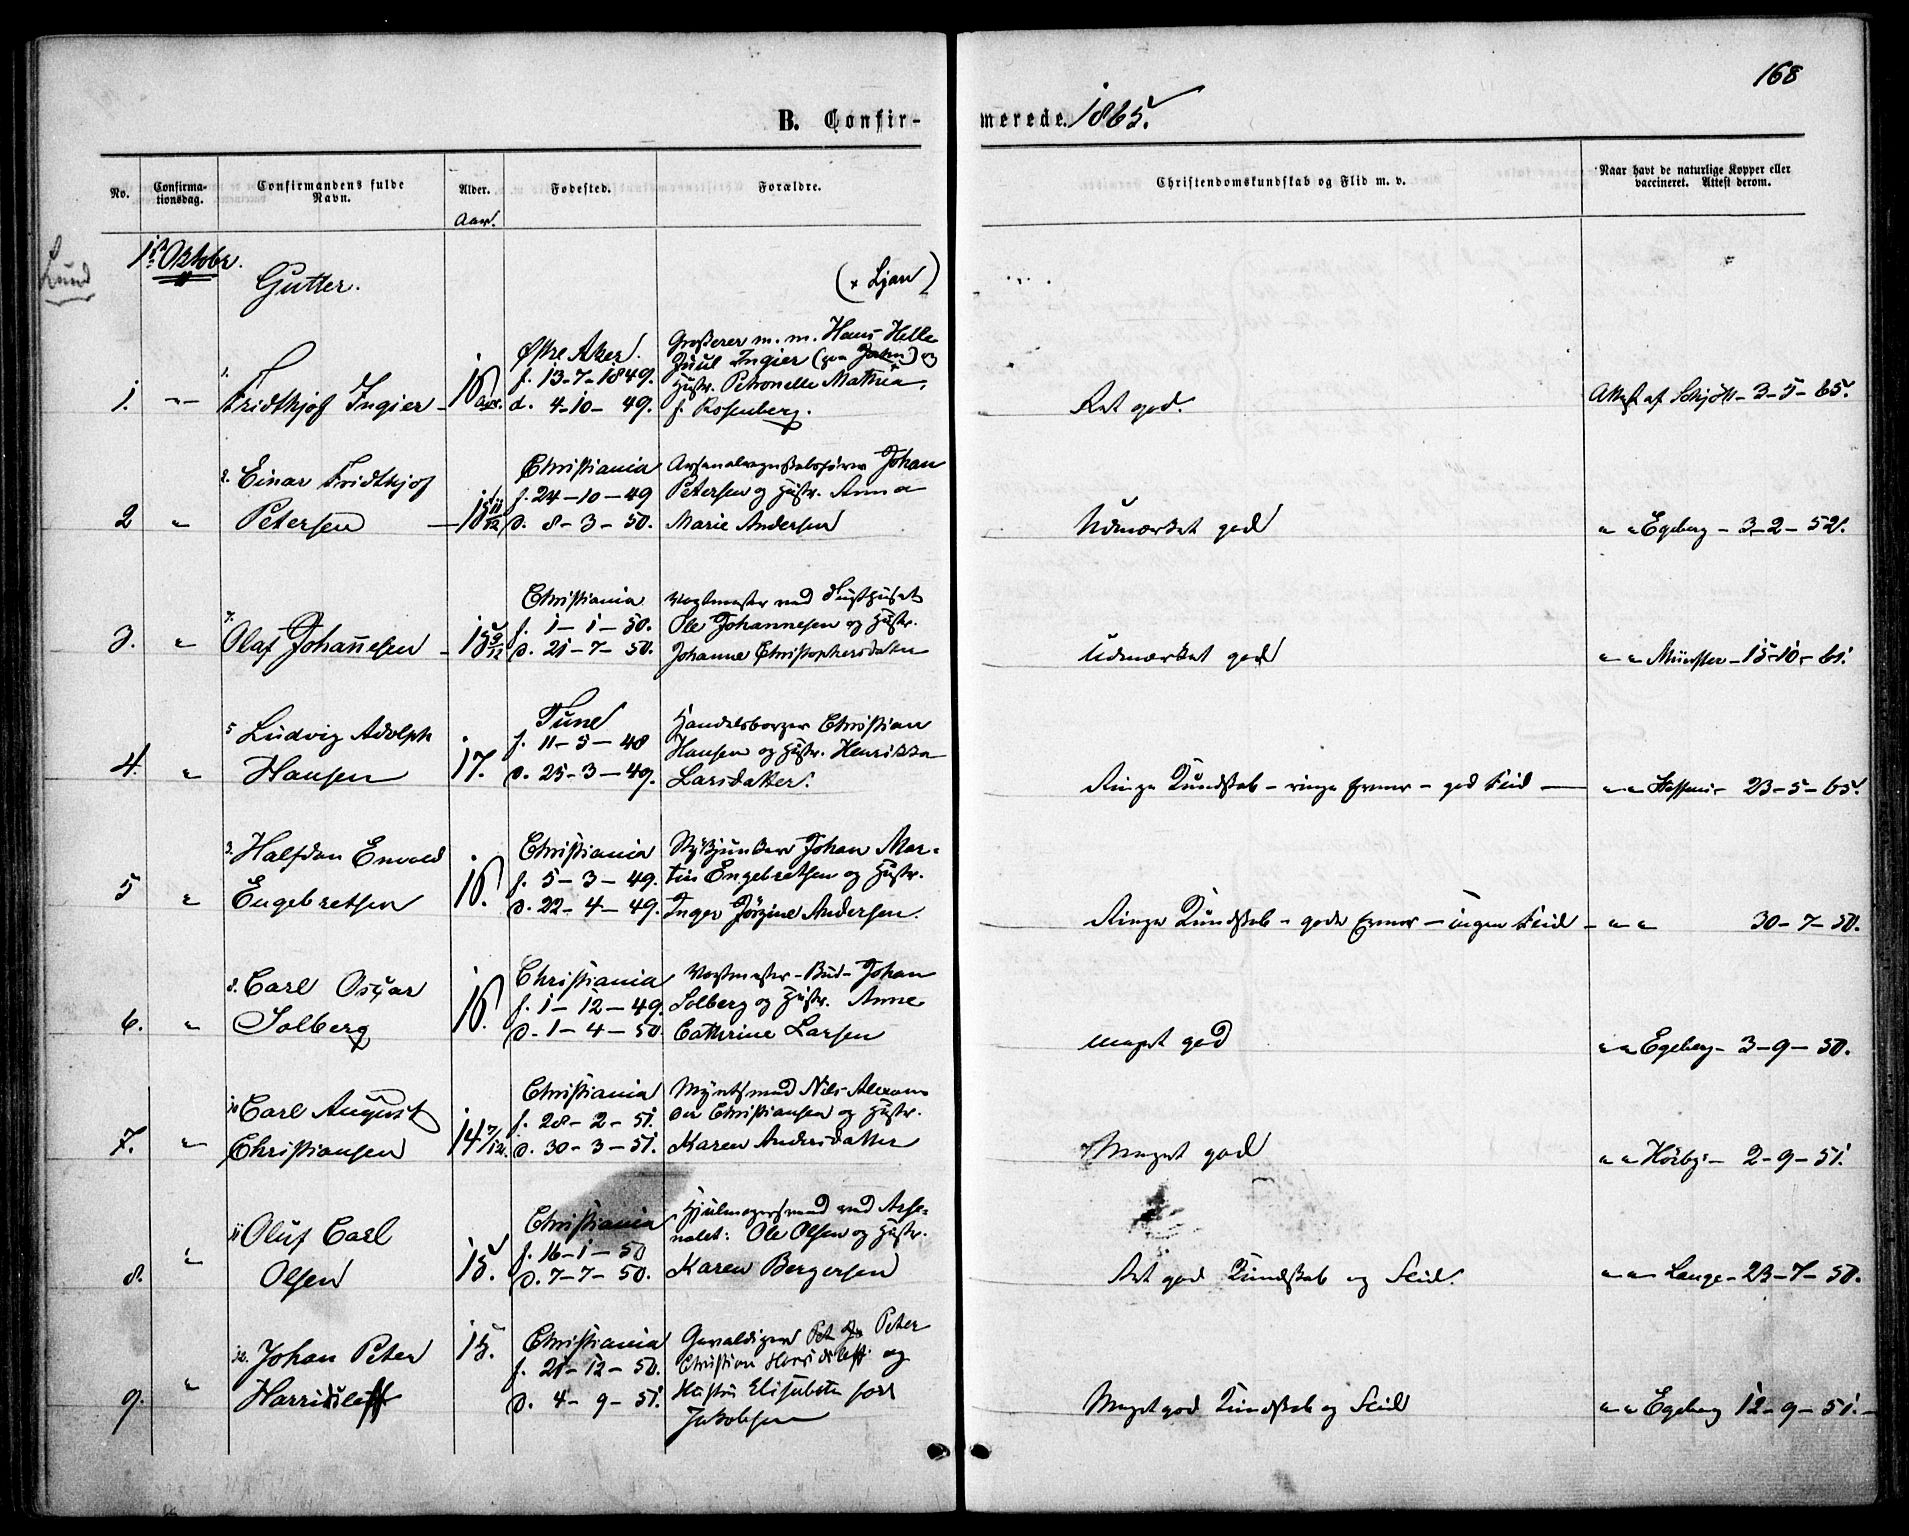 168
B. Confir-
merede. 1865.
No.
Confirma-
tionsdag.
Confirmandens fulde
Navn.
Alder.
Aar.
Fødested.
Forældre.
Christendomskundskab og Flid m. v.
Naar havt de naturlige Kopper eller
vaccineret. Attest derom.
Lund
1ste Oktobr.
Gutter.
(+ Ljan)
1. 1. Fridthjof Ingier - 16
Østre Aker.
f. 13-7-1849.
d. 4-10-49.
Grosserer m. m. Hans Helle
Juul Ingier (paa) og
Hustr. Petronelle Mathea,
f. Rosenberg.
Ret god.
Attest af Schjøtt - 3-5-65.
2 " 2. Einar Fridthjof
Petersen - 15 11/12
Christiania
f. 24-10-49
d. 8-3-50.
Johan
Petersen og Hustr. Anna
Marie Andersen
Udmærket god
" " Egeberg - 3-2-52.
3. " 7. Olaf Johannesen - 15 9/12
Christiania
f. 1-1-50.
d. 21-7-50.
Vagtmester ved Tugthuset
Ole Johannesen og Hustr.
Johanne Christophersdatter
Udmærket god
" " Münster - 15-10-61.
4. " 5 Ludvig Adolph
Hansen 17.
Tune
f. 11-5-48
d. 25-3-49.
Handelsborger Christian
Hansen og Hustr. Henrikka
Larsdatter.
Ringe Kundskab - ringe Evner - god Flid
" " 23-5-65.
5 " 3. Halfdan Emvald
Engebretsen 16.
Christiania
f. 5-3-49.
d. 22-4-49.
Stykjunker Johan Mar-
tin Engebretsen og Hustr.
Inger Jørgine Andersen.
Ringe Kundskab - gode Evner - ingen Flid -
" " 30-7-50.
6. " 8. Carl Oscar
Solberg 16.
Christiania
f. 1-12-49.
d. 1-4-50.
Bud - Johan
Solberg og Hustr. Anne
Cathrine Larsen
meget god
" " Egeberg - 3-9-50.
7. " 10 Carl August
Christiansen 14 7/12.
Christiania
f. 28-2-51.
d. 30-3-51.
Myntsmed Nils Alexan
der Christiansen og Hustr.
Karen Andersdatter
Meget god
" " Hörbye - 2-9-51.
8. " 11 Oluf Carl
Olsen 15.
Christiania
f. 16-1-50
d. 7-7-50.
Hjulmagersvend ved Arse-
nalet: Ole Olsen og Hustr.
Karen Bergersen
Ret god Kundskab og Flid.
" " Lange - 23-7-50.
9. " 12. Johan Peter
Harridsleff 15.
Christiania
f. 21-12-50.
d. 4-9-51.
Gevaldiger Peter
Christian Harridsleff og
Hustru Elisabeth født
Jakobsen
Meget god Kundskab og Flid
" " Egeberg 12-9-51.-